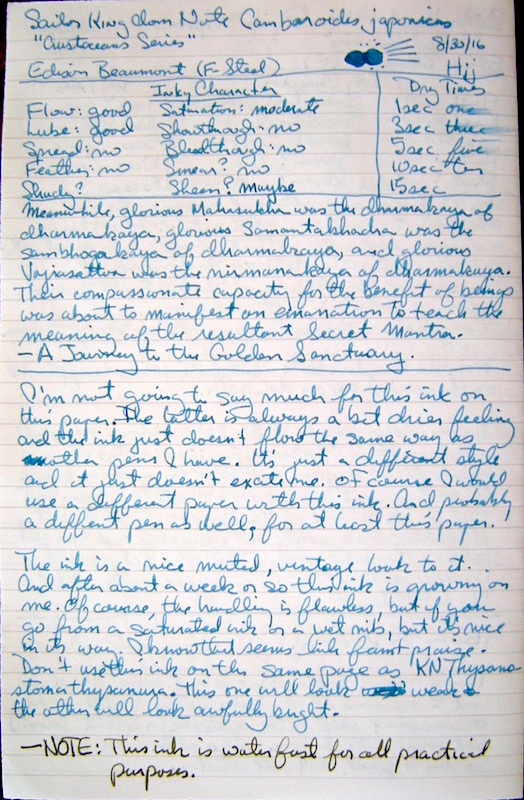 Sailor King dom Note Cambaroides japonicus
"Crustaceans Series"
8/30/16
Edison Beaumont (F-Steel)
Hij
Inky Character
Dry Times
Flow: good Saturation: moderate
1sec one
Lube: good Showthrough: no
3sec three
Spread: no Bleedthrough: no
5sec five
Feather: no Smear? no
10sec ten
Shade? Sheen? maybe
15sec
Meanwhile, glorious Mahasukha was the dharmakaya of
dharmakaya, glorious Samantabhadra was the
sambhogakaya of dharmakaya, and glorious
Vajrasattva was the nirmanakaya of dharmakaya.
Their compassionate capacity for the benefit of beings
was about to manifest an emanation to teach the
meaning of the resultant Secret Mantra.
- A Journey to the Golden Sanctuary.
I'm not going to say much for this ink on
this paper. The latter is always a bit drier feeling
and the ink just doesn't flow the same way as
other pens I have. It's just a different style
and it just doesn't excite me. Of course I would
use a different paper with this ink. And probably
a diffent pen as well, for at least this paper.
The ink is a nice muted, vintage look to it..
And after about a week or so this ink is growing on
me. Of course, the handling is flawless, but if you
go from a saturated ink or a wet nib, but it's nice
in its way. I know that seems like faint praise.
Don't use this ink on the same page as KN Thysano
stoma thysanura. This one will look weak &
the other will look awfully bright.
- NOTE: This ink is waterfast for all practical
purposes.